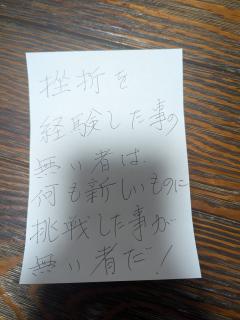 挫折を
経験した事の
無い者は、
何も新しいものに
挑戦した事が
無い者だ!